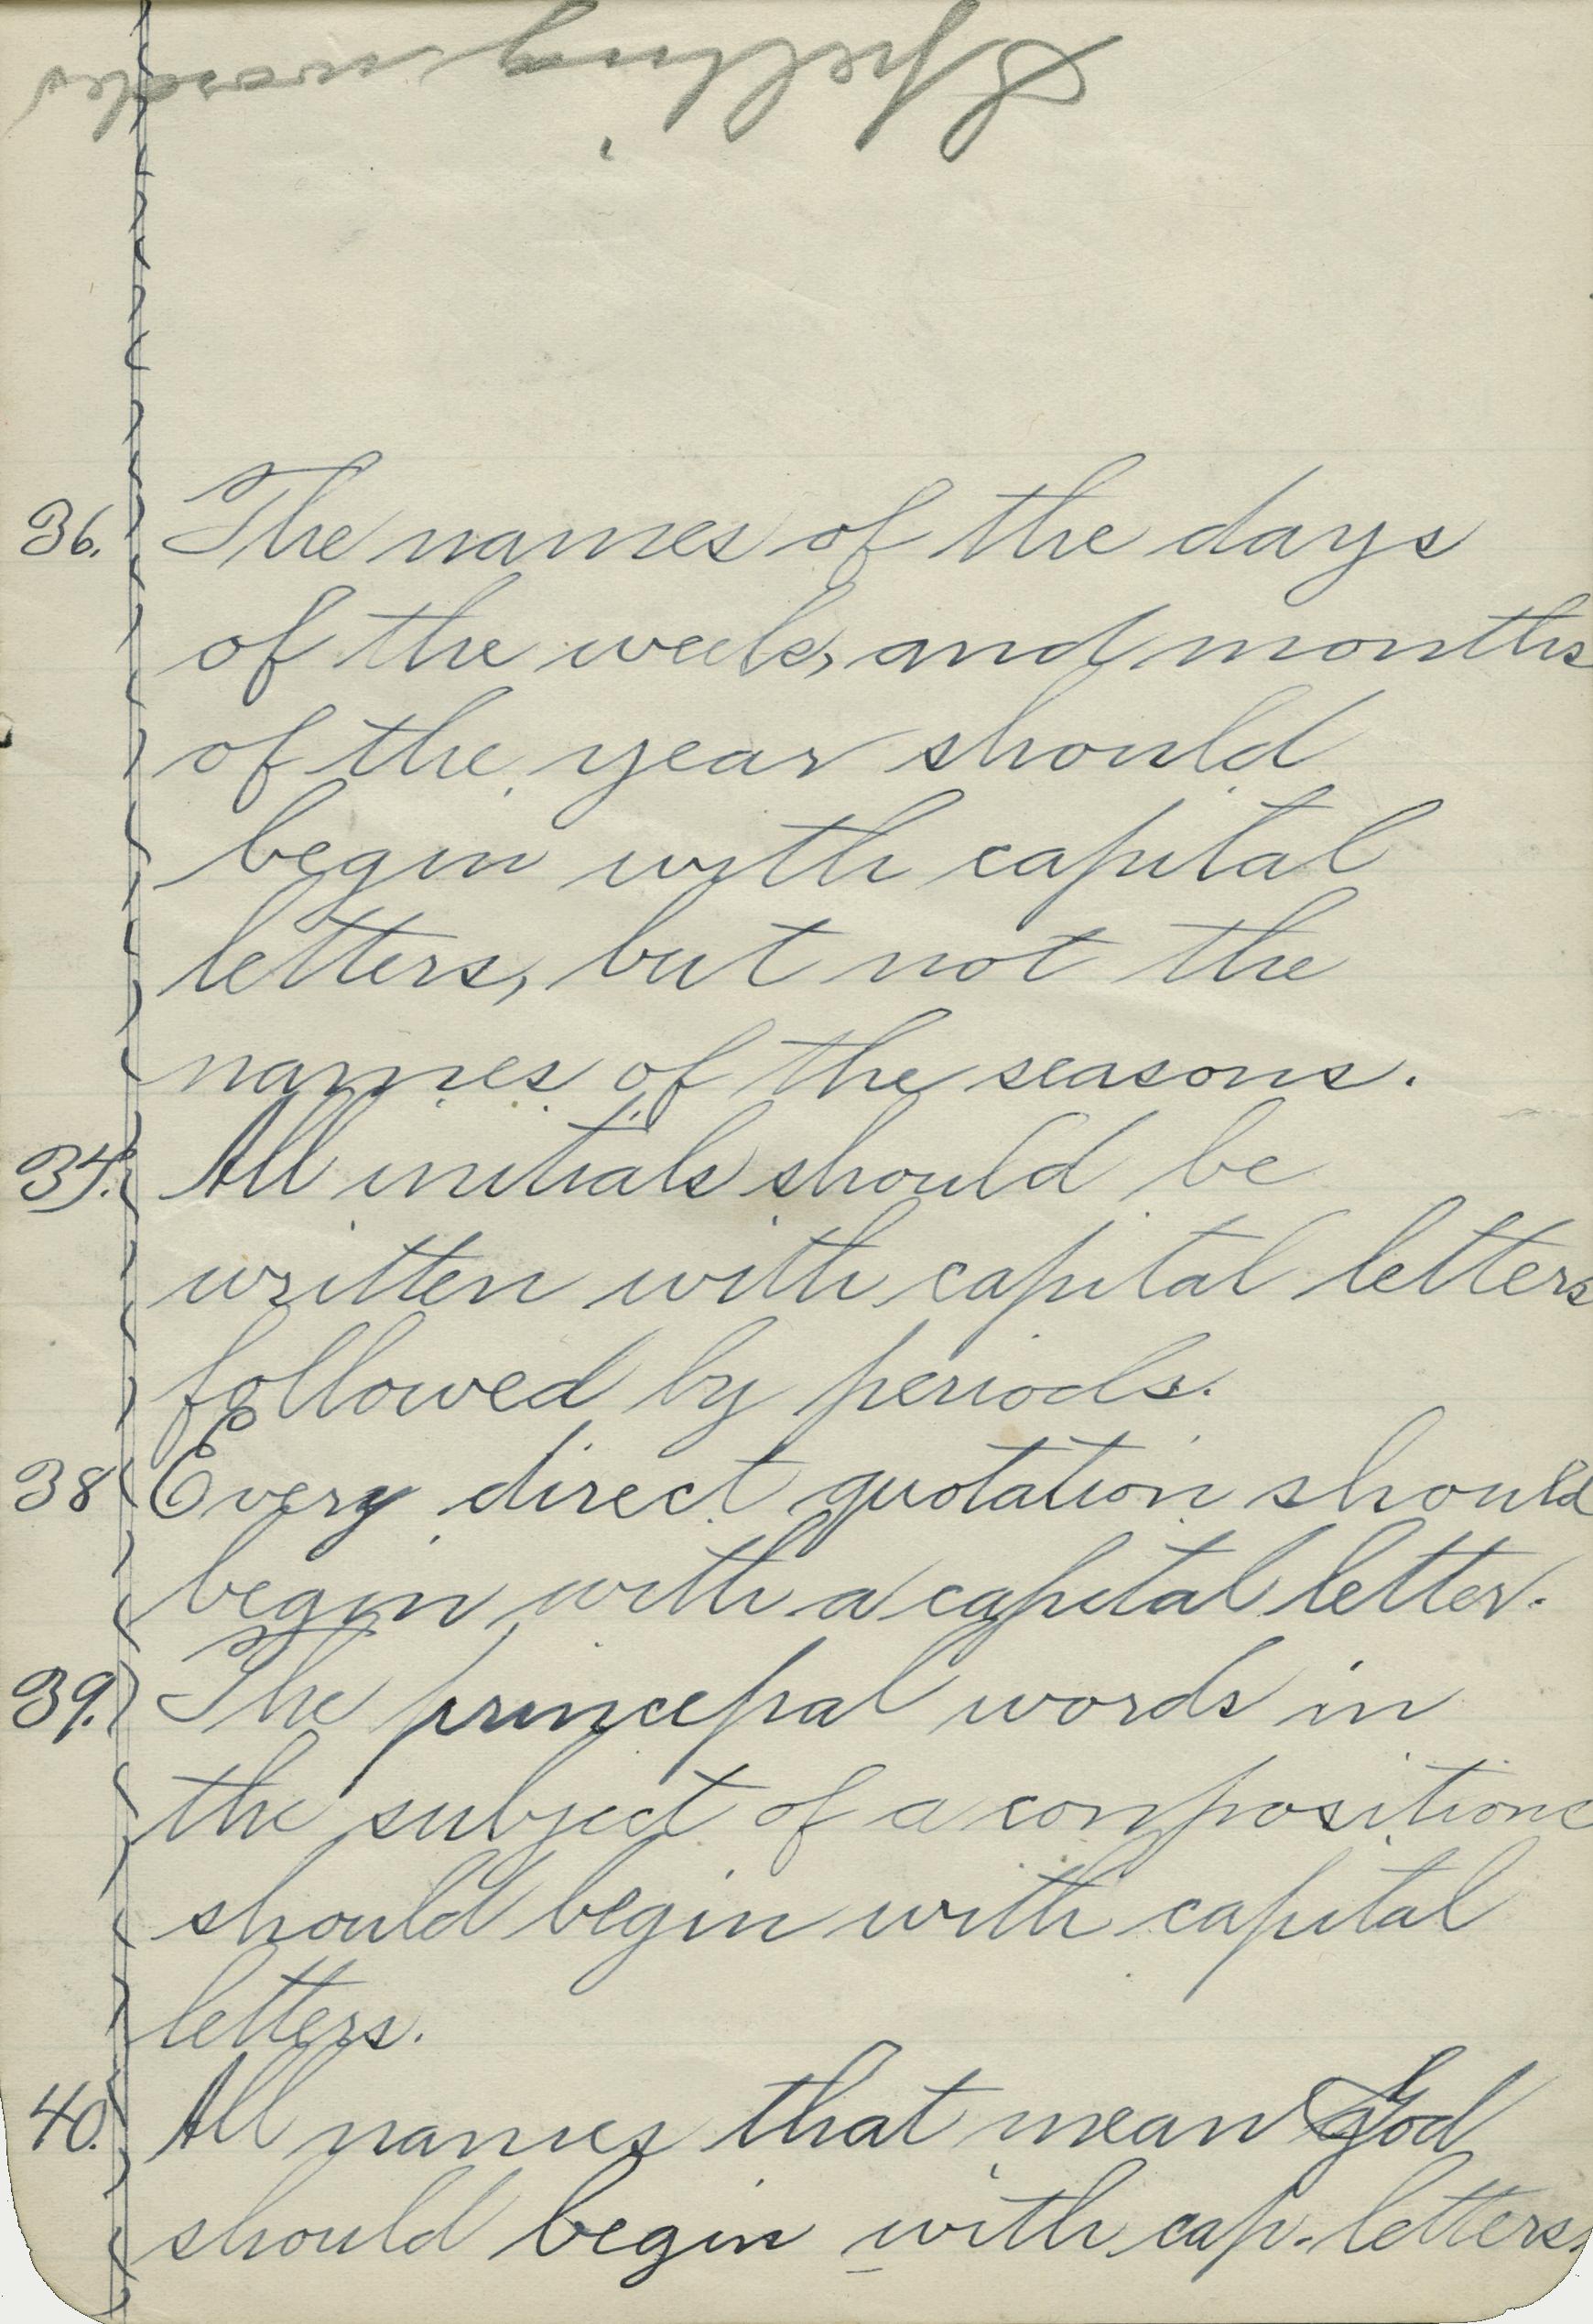 Spelling words
36. The names of the days
of the week, and months
of the year should
begin with capital
letters, but not the
names of the seasons.
37. All initials should be
written with capital letters
followed by periods.
38 Every direct quotation should
begin with a capital letter.
39. The principal words in
the subject of a conposition
should begin with capital
letters.
40. All names that mean God
should begin with cap. letters.